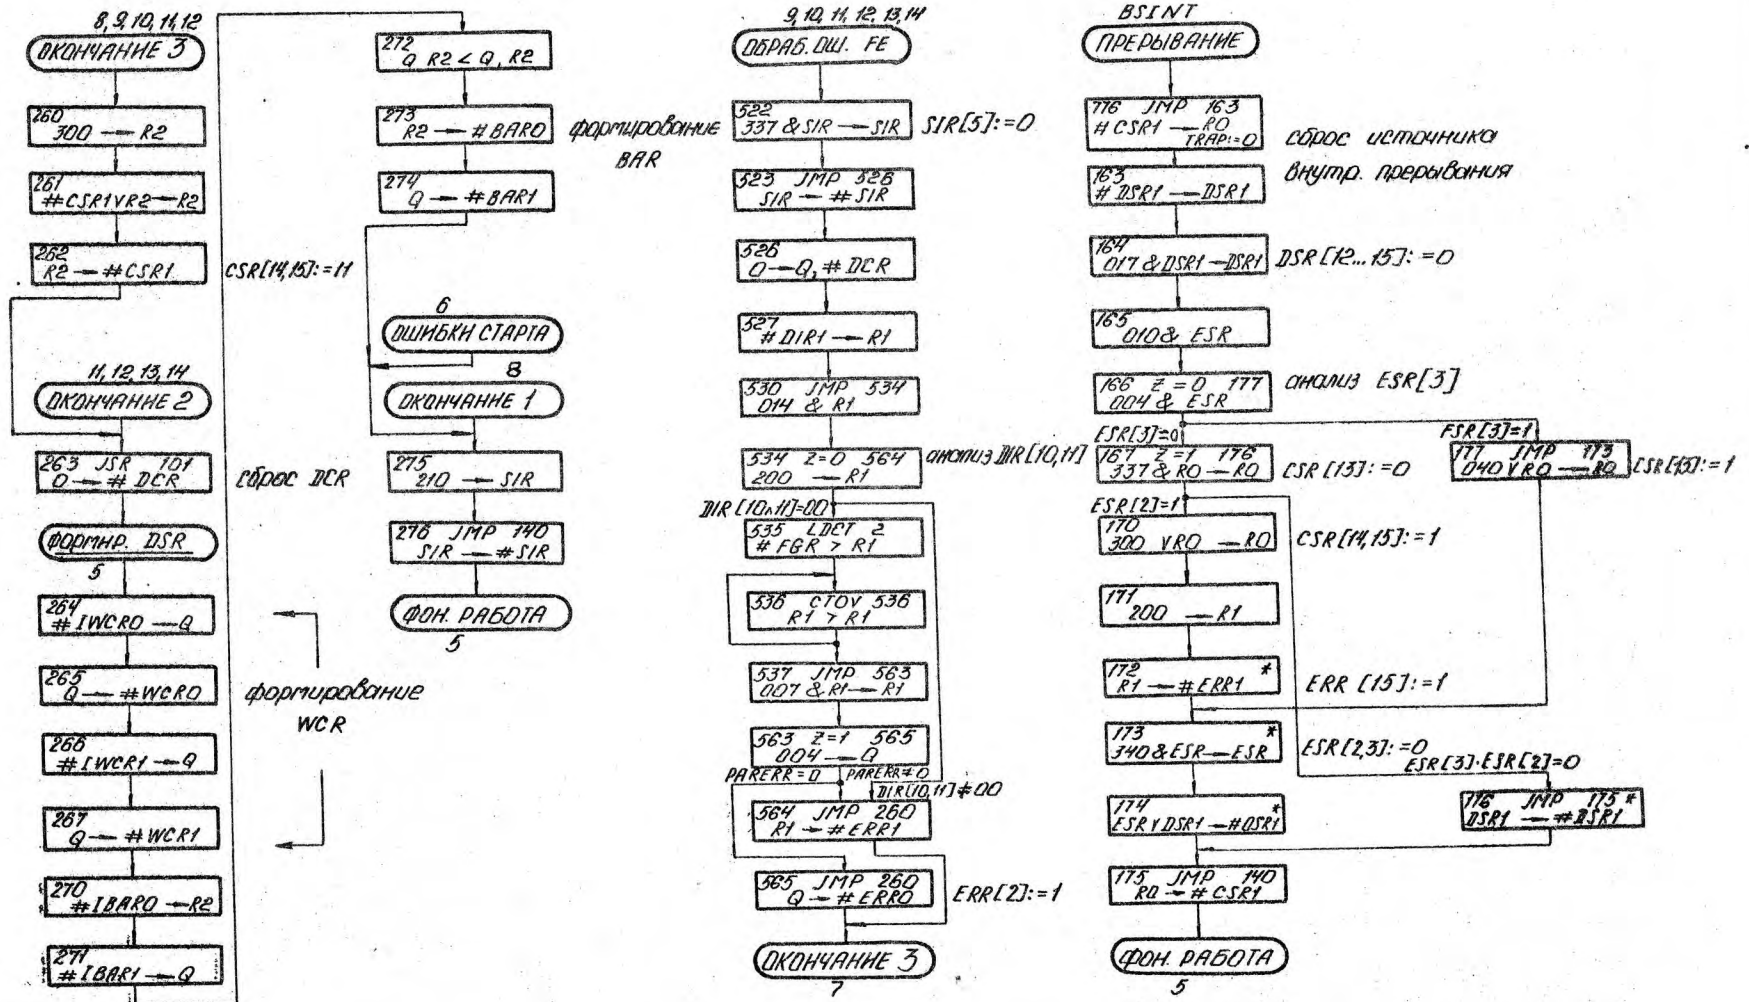 8, 9, 10, 11, 12
ОКОНЧАНИЕ 3
260
300 → R2
261
#CSR1 V R2 → R2
262
R2 → #CSR1
CSR[14,15]:=11
11, 12, 13, 14
ОКОНЧАНИЕ 2
263 JSR 101
0 → # DCR
сброс DCR
ФОРМИР. DSR
5
264
#IWCR0 → Q
265
Q → #WCR0
266
#IWCR1 → Q
267
Q → #WCR1
формирование
WCR
270
#IBAR0 → R2
271
#IBAR1 → Q
272
Q R2 < Q, R2
273
R2 → #BAR0
274
Q → #BAR1
формирование
BAR
6
ОШИБКИ СТАРТА
8
ОКОНЧАНИЕ 1
275
210 → SIR
276 JMP 140
SIR → #SIR
ФОН. РАБОТА
5
9, 10, 11, 12, 13, 14
ОБРАБ. ОШ. FE
522
337 & SIR → SIR
SIR[5]:=0
523 JMP 526
SIR → # SIR
526
0 → Q, # DCR
527
# DIR1 → R1
530 JMP 534
014 & R1
534 Z=0 564
200 → R1
анализ DIR[10,11]
DIR[10,11]=00
535 LDCT 2
# FGR > R1
536 CTOV 536
R1 > R1
537 JMP 563
007 & R1 → R1
563 Z=1 565
004 → Q
PARERR=0
PARERR≠0
DIR[10,11]≠00
564 JMP 260
R1 → #ERR1
565 JMP 260
Q → #ERR0
ERR[2]:=1
ОКОНЧАНИЕ 3
7
BSINT
ПРЕРЫВАНИЕ
776 JMP 163
# CSR1 → R0
TRAP:=0
сброс источника
внутр. прерывания
163
# DSR1 → DSR1
164
017 & DSR1 → DSR1
DSR[12...15]:=0
165
010 & ESR
166 Z=0 177
004 & ESR
анализ ESR[3]
ESR[3]=0
ESR[3]=1
167 Z=1 176
337 & R0 → R0
CSR[13]:=0
177 JMP 173
040 V R0 → R0
CSR[13]:=1
ESR[2]=1
170
300 V R0 → R0
CSR[14,15]:=1
171
200 → R1
172 *
R1 → #ERR1
ERR [15]:=1
173 *
340 & ESR → ESR
ESR[2,3]:=0
ESR[3]·ESR[2]=0
174 *
ESR V DSR1 → #DSR1
176 JMP 175 *
DSR1 → # DSR1
175 JMP 140
R0 → # CSR1
ФОН. РАБОТА
5